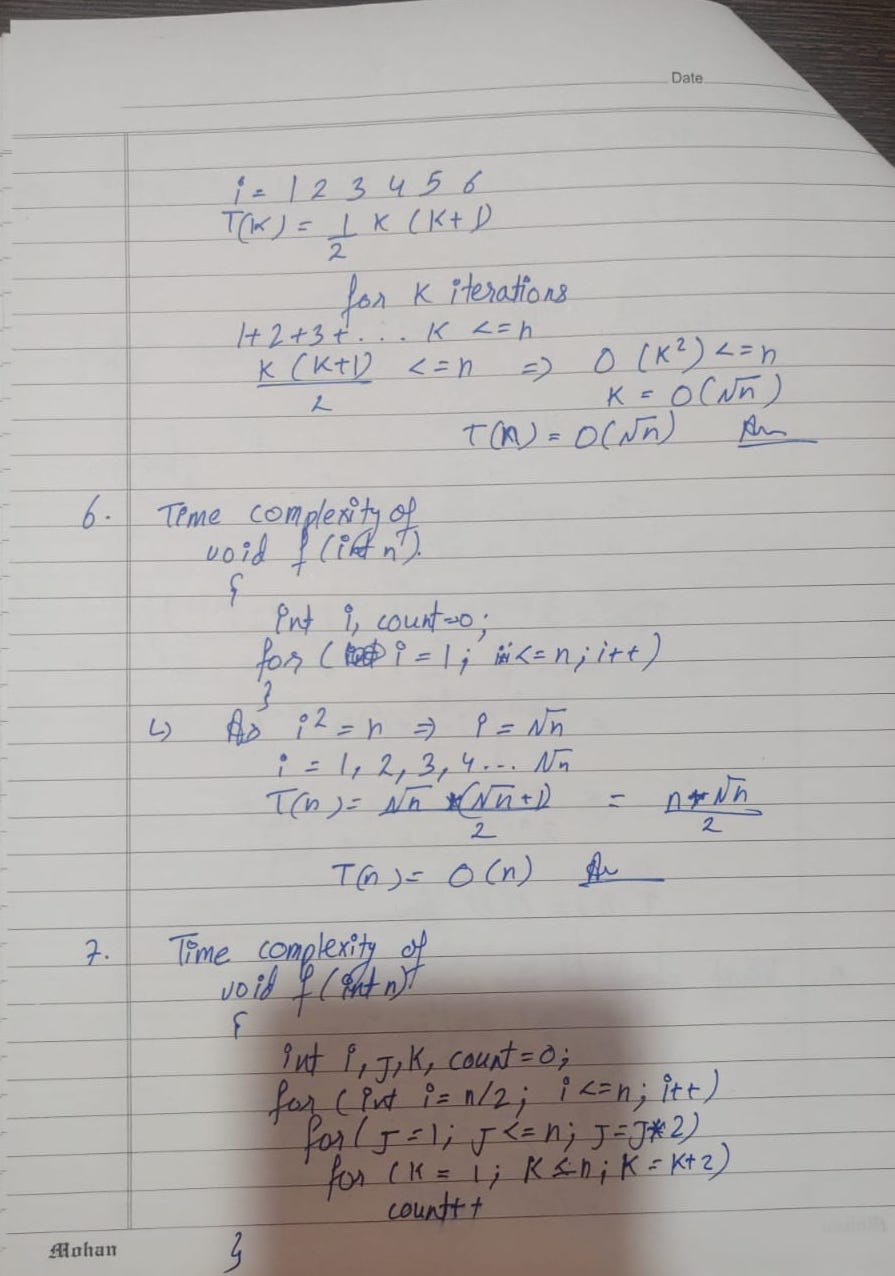 Date
i = 1 2 3 4 5 6
T(K) = 1/2 K (K+1)
for K iterations
1+2+3+... K <=n
K(K+1)/2 <=n => O(K²) <=n
K = O(√n)
T(n) = O(√n) Ans
6. Time complexity of
void f(int n).
{
int i, count=0;
for (i=1; ii<=n; i++)
}
↳ As i² = n => i = √n
i = 1, 2, 3, 4... √n
T(n) = √n *(√n+1)/2 = n+√n/2
T(n) = O(n) Ans
7. Time complexity of
void f(int n)
{
int i, J, K, count=0;
for (int i=n/2; i<=n; i++)
for(J=1; J<=n; J=J*2)
for (K=1; K≤n; K=K+2)
count++
}
Mohan